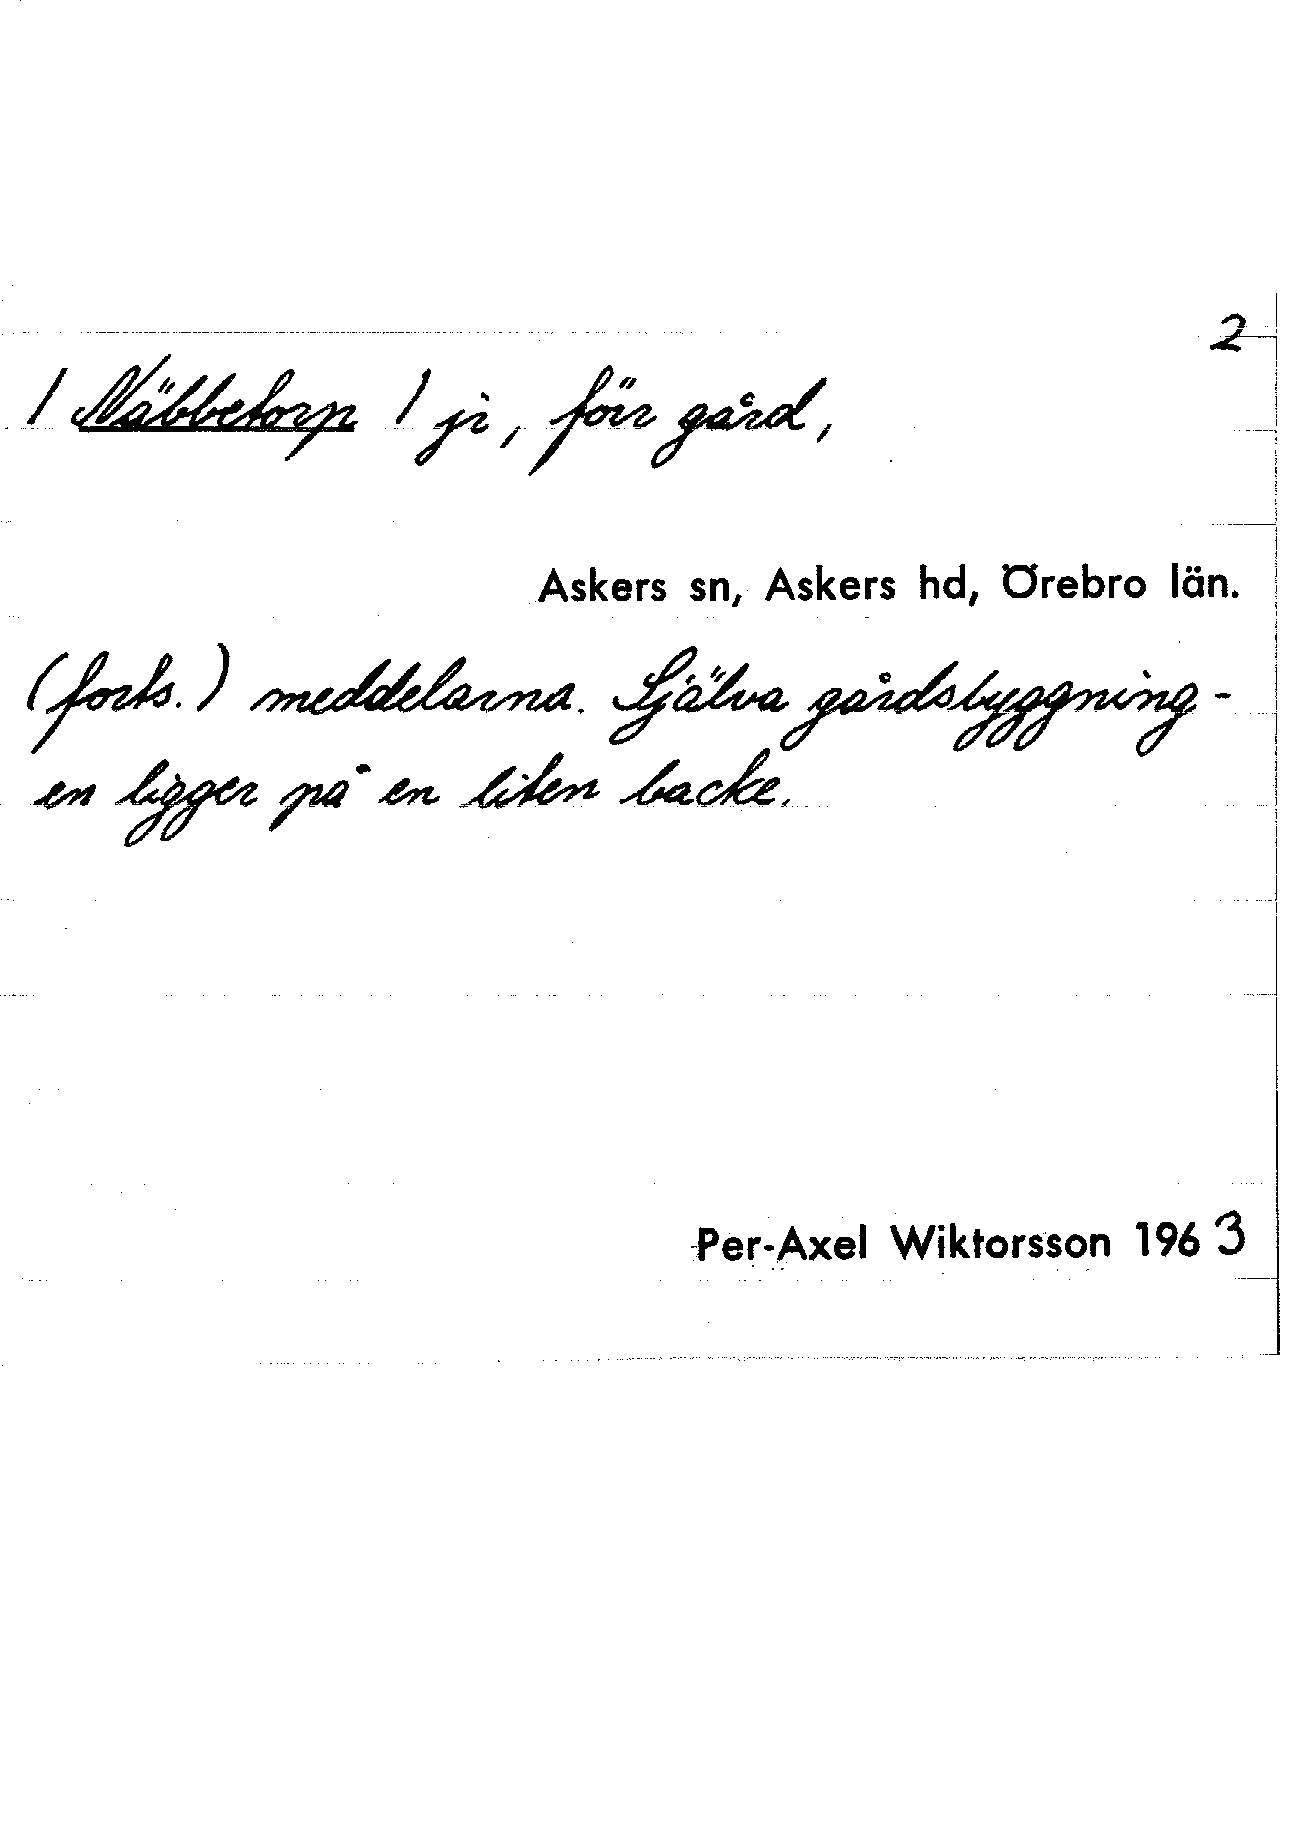 2
/ Näbbetorp / ji, förr gård,
Askers sn, Askers hd, Örebro län.
(forts.) meddelarna. Själva gårdsbyggning-
en ligger på en liten backe.
Per-Axel Wiktorsson 1963